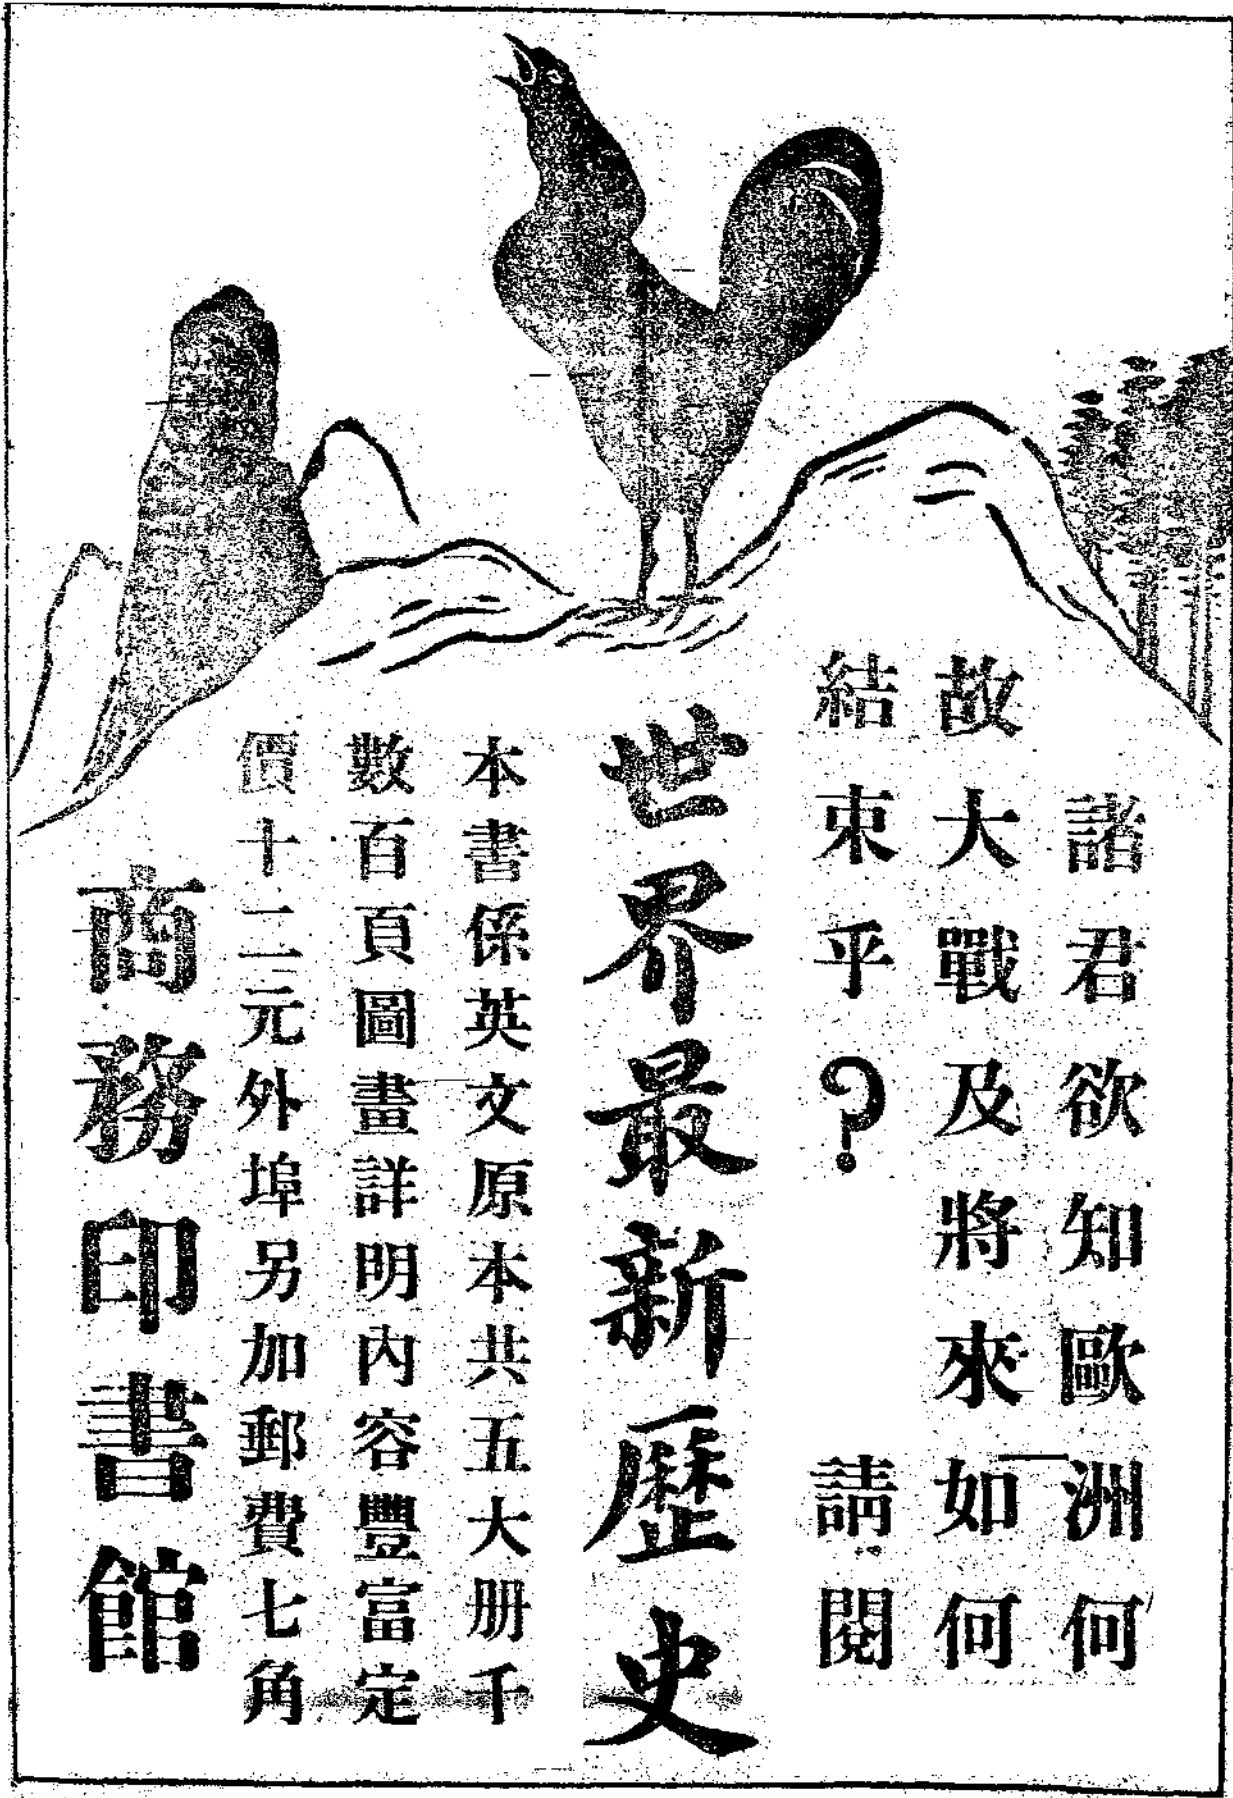 諸君欲知歐洲何
故大戰及將來如何
結束乎？ 請閱
世界最新歷史
本書係英文原本共五大册千
數百頁圖畫詳明內容豐富定
價十二元外埠另加郵費七角
商務印書館